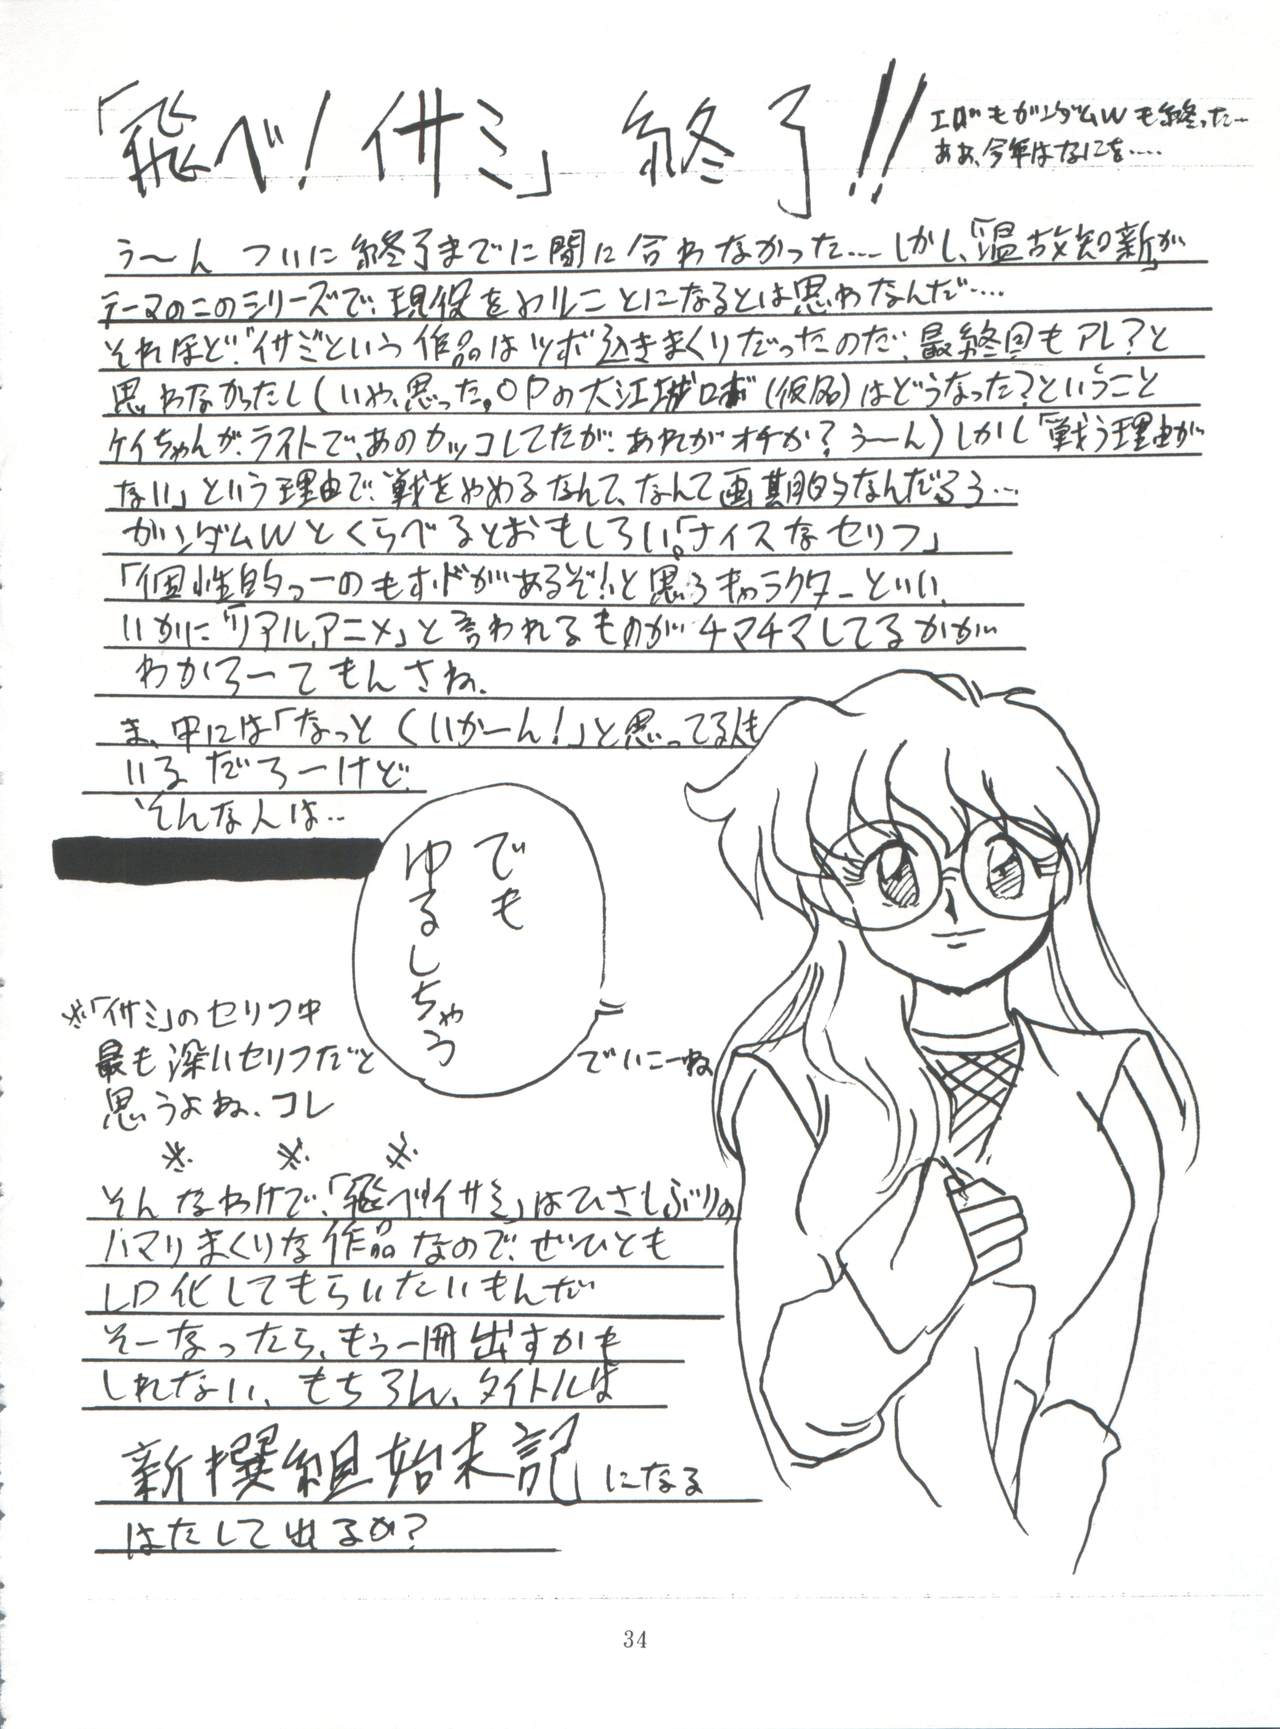 「飛べ!イサミ」終了!!
エヴァもガンダムWも終った…
ああ、今年はなにを……
う〜ん ついに終了までに間に合わなかった……しかし、「温故知新」が
テーマのこのシリーズで、現役をやることになるとは思わなんだ……
それほど、「イサミ」という作品はツボ込きまくりだったのだ、最終回もアレ?と
思わなかったし(いや、思った。OPの大江城ロボ(仮名)はどうなった?ということと
ケイちゃんが、ライトで、あのカッコしてたが、あれがオチか?う〜ん)しかし「戦う理由が
ない」という理由で、戦をやめるなんて、なんて画期的なんだろう…
ガンダムWとくらべるとおもしろい。「ナイスなセリフ」
「個性的っーのもホドがあるぞ!」と思うキャラクターといい、
いかに「リアルアニメ」と言われるものがチマチマしてるかが
わかろーてもんさね。
ま、中には「なっとくいかーん!」と思ってる人も
いるだろーけど、
そんな人は‥
でも
ゆるしちゃう
でいこーね
※「イサミ」のセリフ中
最も深いセリフだと
思うよね、コレ
※ ※ ※
そんなわけで、「飛べ!イサミ」はひさしぶりの
ハマりまくりな作品なので、ぜひとも
LD化してもらいたいもんだ
そーなったら、もう一冊出すかも
しれない、もちろん、タイトルは
新撰組始末記になる
はたして出るか?
34